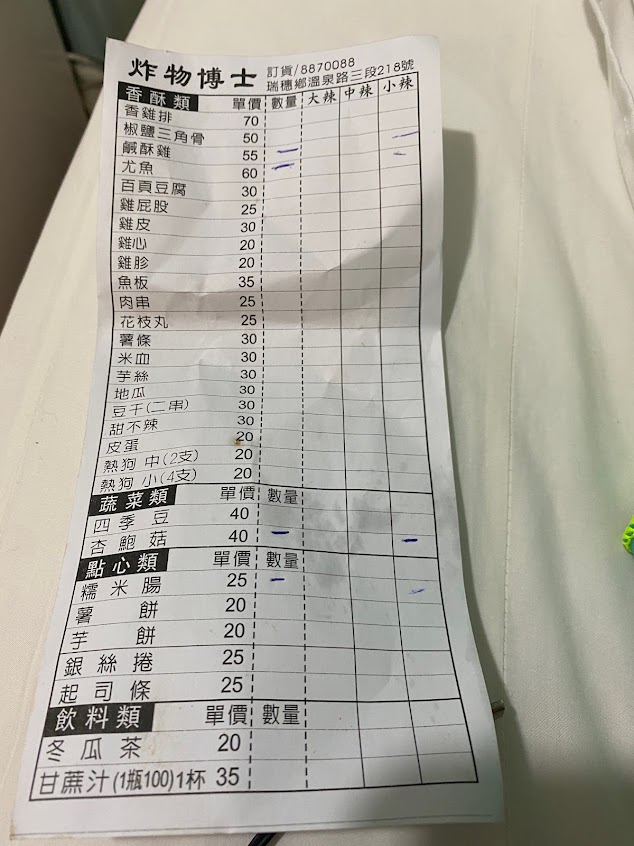 炸物博士 訂貨/8870088
瑞穗鄉溫泉路三段218號
香酥類 單價 數量 大辣 中辣 小辣
香雞排 70
椒鹽三角骨 50
鹹酥雞 55
尤魚 60
百頁豆腐 30
雞屁股 25
雞皮 30
雞心 20
雞胗 20
魚板 35
肉串 25
花枝丸 25
薯條 30
米血 30
芋絲 30
地瓜 30
豆干(二串) 30
甜不辣 30
皮蛋 20
熱狗 中(2支) 20
熱狗 小(4支) 20
蔬菜類 單價 數量
四季豆 40
杏鮑菇 40
點心類 單價 數量
糯米腸 25
薯餅 20
芋餅 20
銀絲捲 25
起司條 25
飲料類 單價 數量
冬瓜茶 20
甘蔗汁(1瓶100)1杯 35